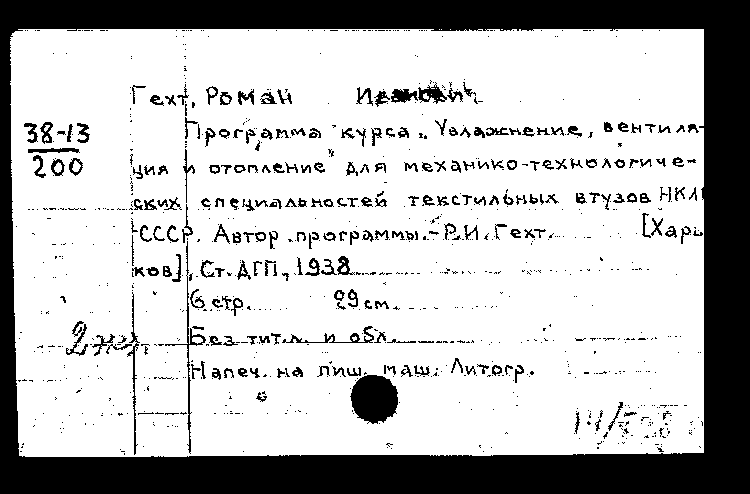 Гехт, Роман Иванович
38-13
200
Программа курса „Увлажнение, вентиля-
ция и отопление" для механико-технологиче-
ских специальностей текстильных втузов НКЛП
СССР. Автор программы.-Р.И. Гехт. [Харь-
ков], Ст. ДГП, 1938
6 стр. 29 см.
2 экз. Без тит.л. и обл.
Напеч. на пиш. маш. Литогр.